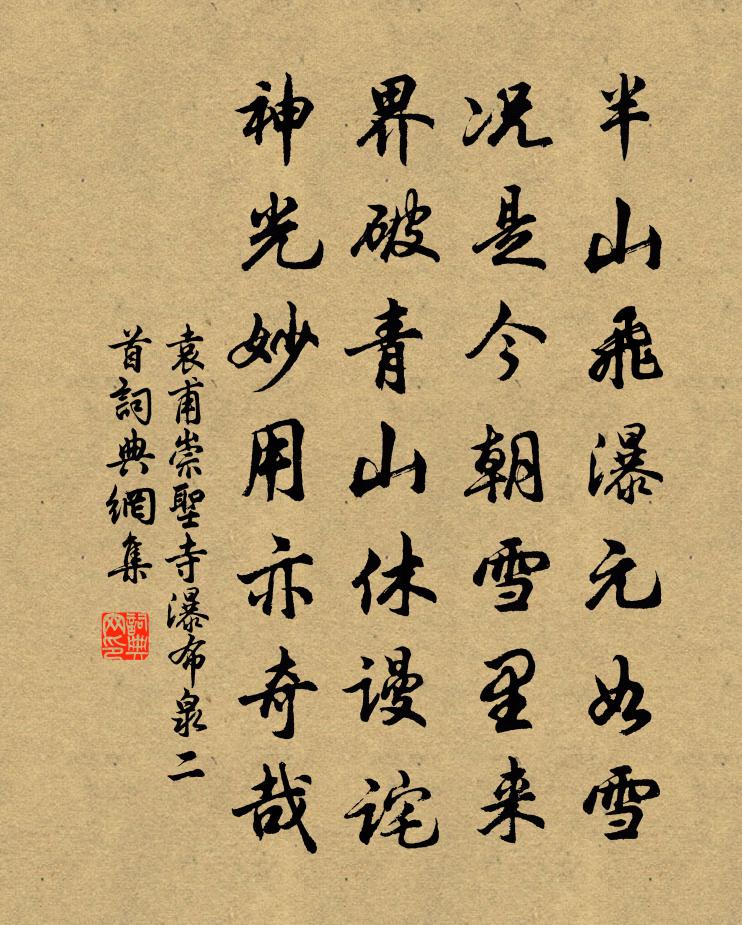 半山飛瀑元如雪
况是今朝雪里来
界破青山休謾詫
神光妙用亦奇哉
袁甫崇聖寺瀑布泉二
首詞典網集
詞典
网印